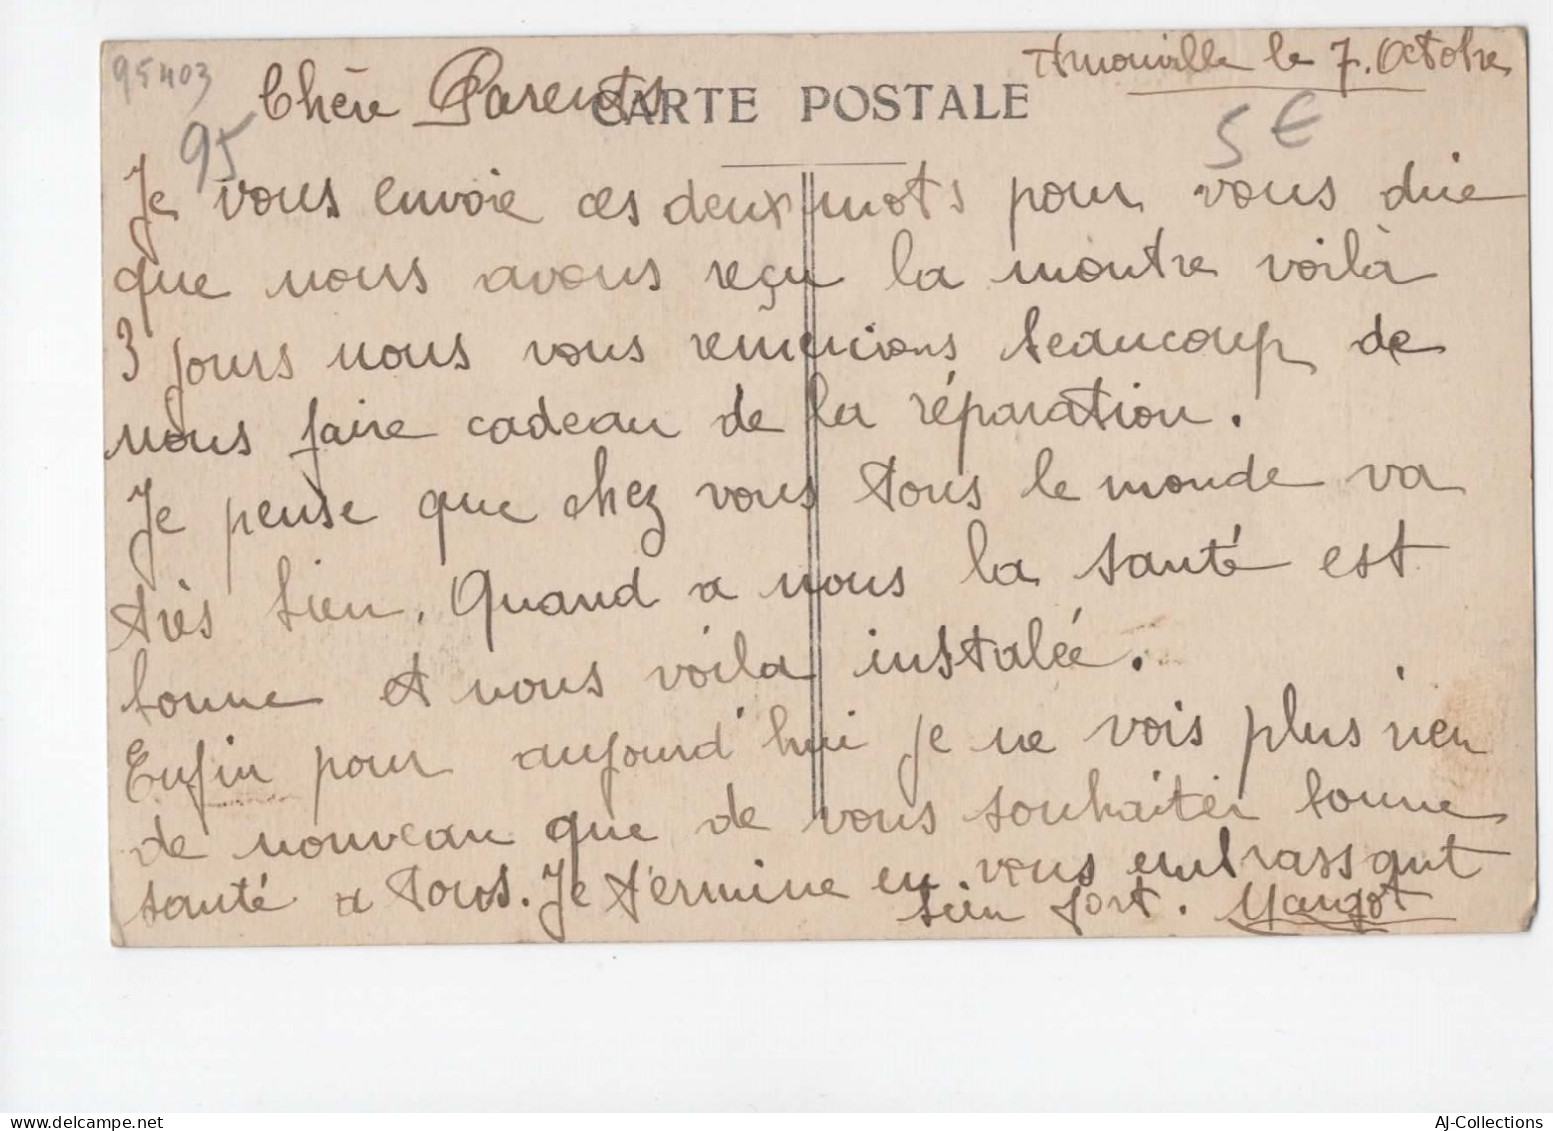 95403
Arnouville le 7. Octobre
Chère Parents
CARTE POSTALE
95
5 €
Je vous envoie ces deux mots pour vous dire
que nous avons reçu la montre voilà
3 jours nous vous remercions beaucoup de
nous faire cadeau de la réparation.
Je pense que chez vous tous le monde va
très bien. Quand a nous la santé est
bonne et nous voila instalée.
Enfin pour aujourd'hui je ne vois plus rien
de nouveau que de vous souhaiter bonne
santé a tous. Je termine en vous embrassant
bien fort. Margot
AJ-Collections